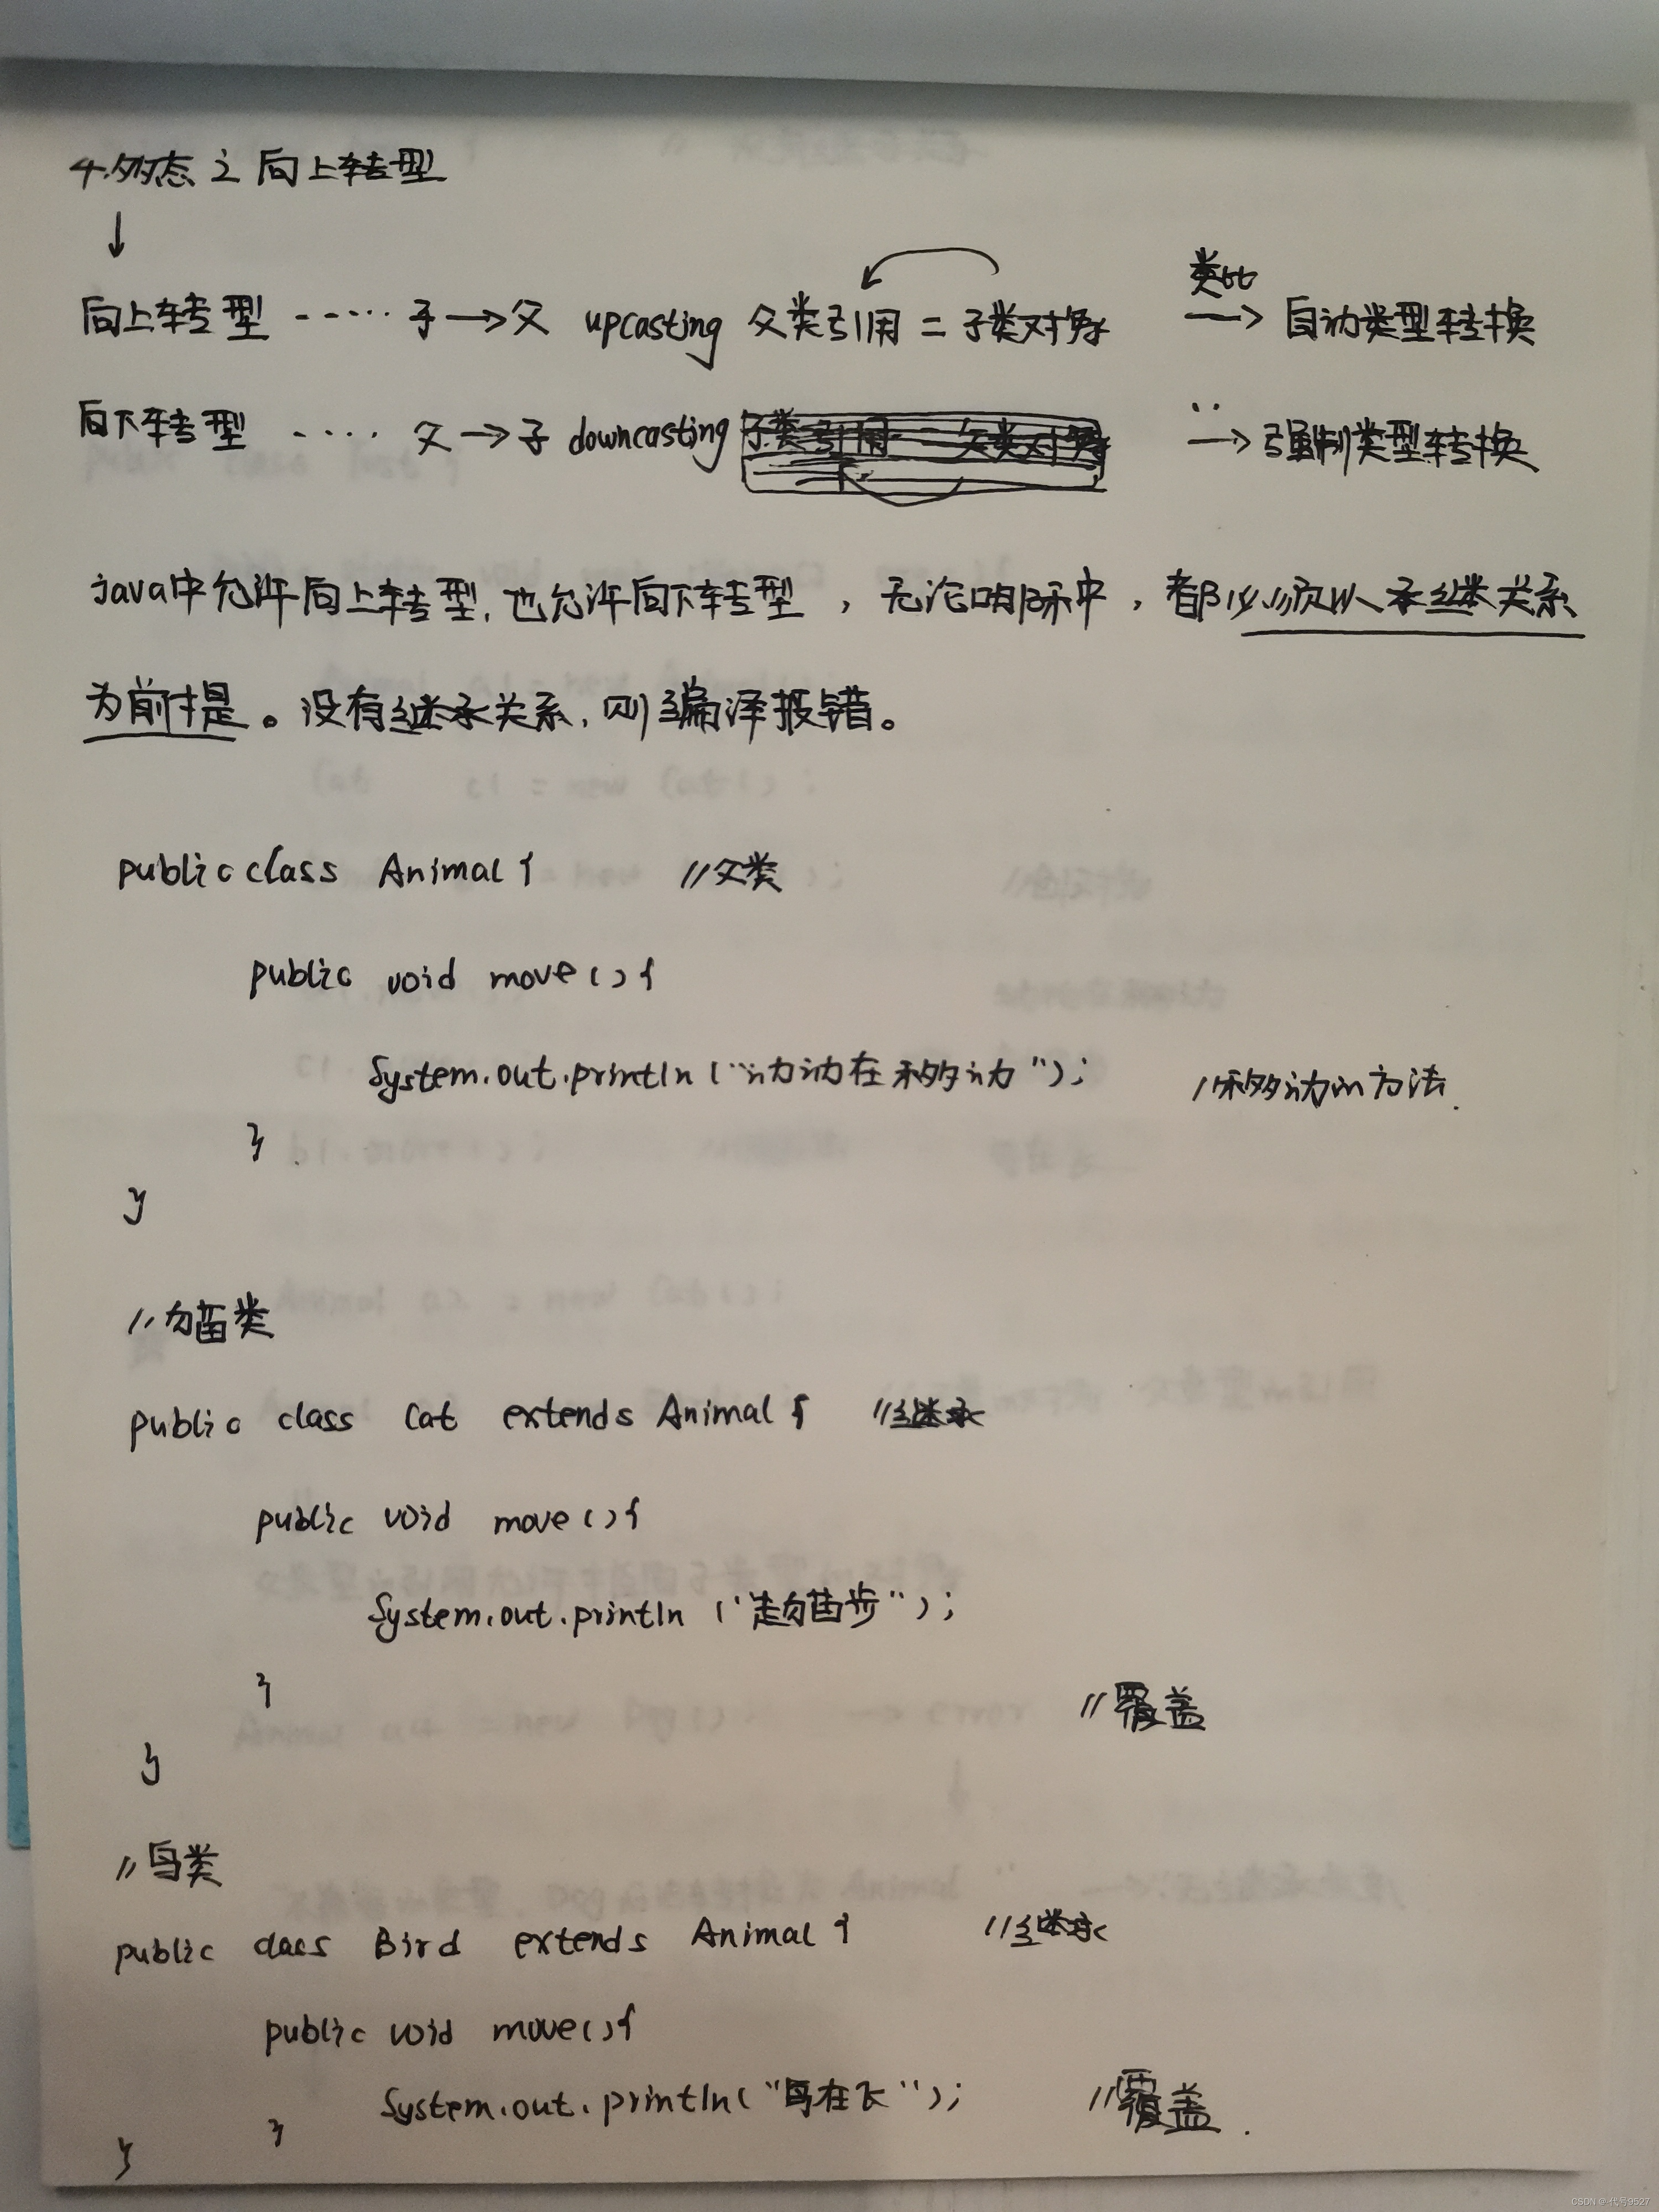 4.多态之向上转型
↓
向上转型 ······ 子→父 upcasting 父类引用 = 子类对象 类比→ 自动类型转换
向下转型 ···· 父→子 downcasting 子类引用 父类对象 ··→ 强制类型转换
java中允许向上转型,也允许向下转型,无论哪种,都必须以承继关系
为前提。没有继承关系,则编译报错。
public class Animal { //父类
public void move(){
System.out.println("动物在移动"); //移动的方法.
}
}
//猫类
public class Cat extends Animal { //继承
public void move(){
System.out.println("走猫步");
}
//覆盖
}
//鸟类
public class Bird extends Animal { //继承
public void move(){
System.out.println("鸟在飞"); //覆盖.
}
}
CSDN @代号9527